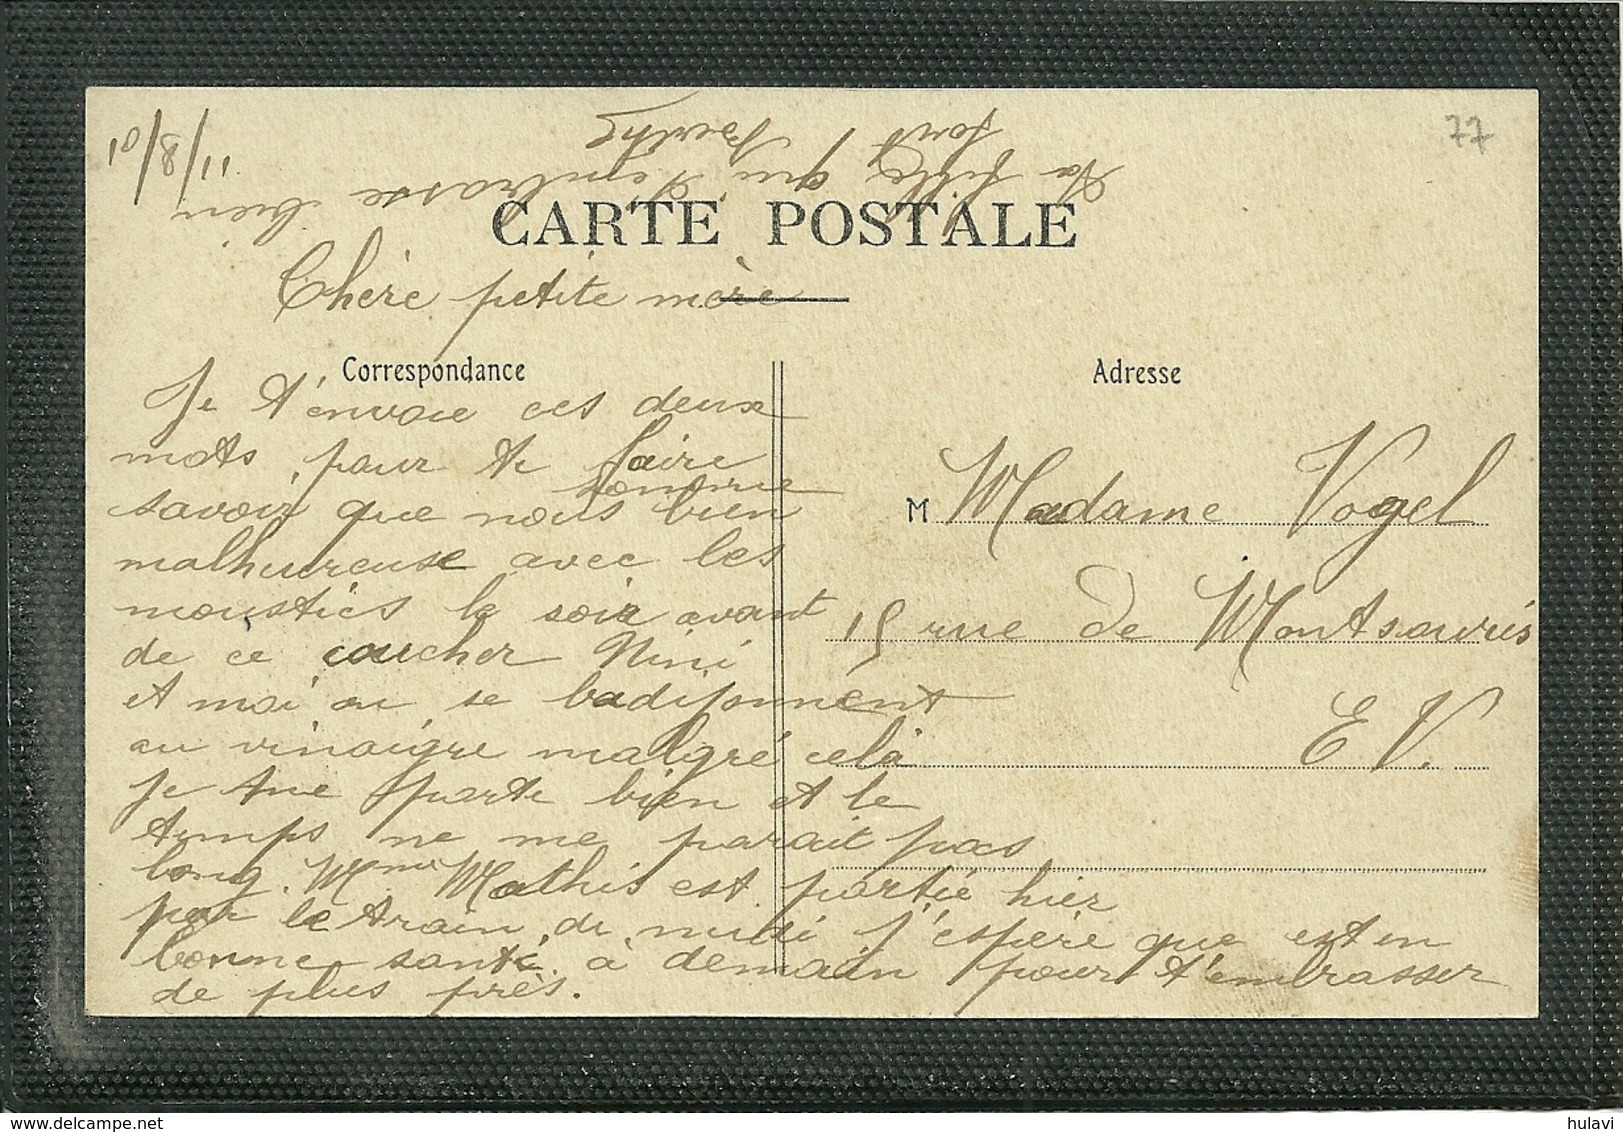 11/8/01
77
CARTE POSTALE
Chère petite mère
Correspondance
Je t'envoie ces deux
mots pour te faire
savoir que nous somme bien
malheureuse avec les
mousties le soir avant
de ce coucher Nini
et moi on se badijonnent
au vinaigre malgré celà
je me porte bien et le
temps ne me parait pas
long. Mme Mathis est partie hier
par le train de midi j'espère que est en
bonne santé. à demain pour t'embrasser
de plus près.
Ta fille qui t'embrasse bien
fort
Adresse
M Madame Vogel
15 rue de Montsouris
E. V.
hulavi